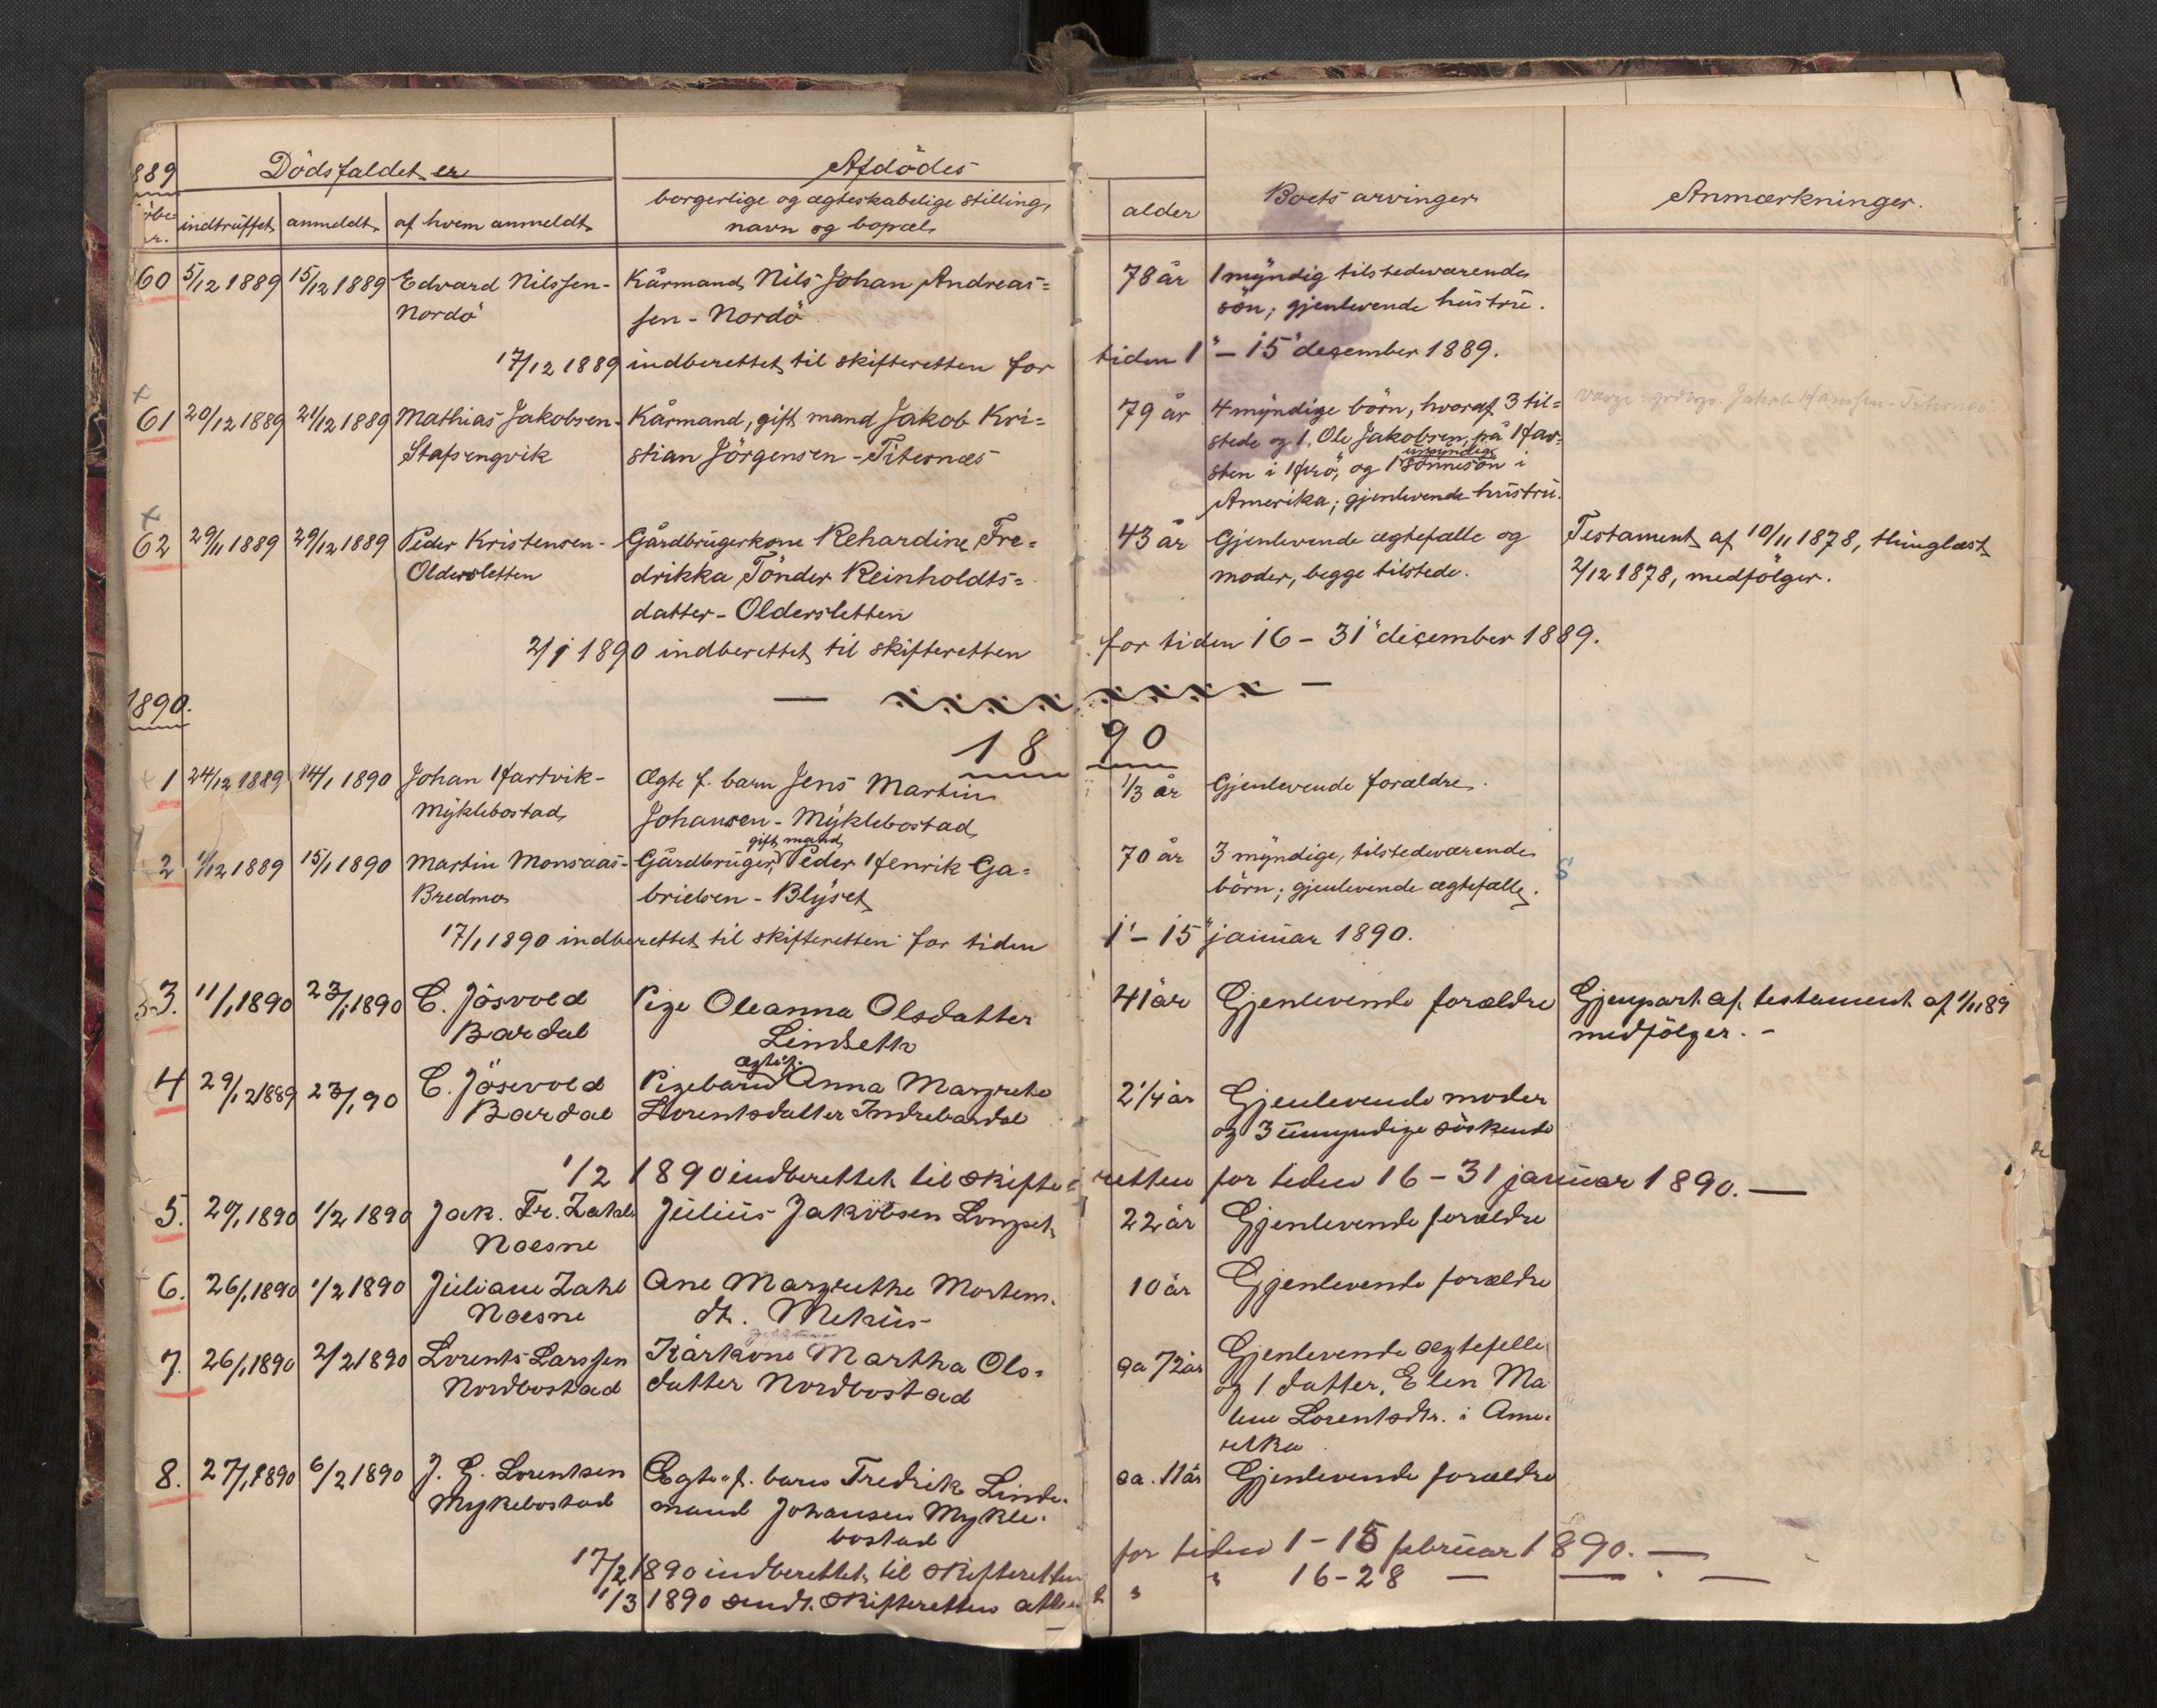 889
Dödsfaldet er
Afdödes
indtruffet anmeldt af hvem anmeldt
borgerlige og ægteskabelige stilling,
navn og bopæl
alder
Boets arvinger
Anmærkninger.
60 5/12 1889 15/12 1889 Edvard Nilssen- Kårmand Nils Johan Andreas= 78 år 1 myndig tilstedeværende
Nordö sen - Nordö sön; gjenlevende hustru.
17/12 1889 indberettet til skifteretten for tiden 1 - 15 december 1889.
61 20/12 1889 21/12 1889 Mathias Jakobsen- Kårmand, gift mand Jakob Kri= 79 år 4 myndige börn, hvoraf 3 til=
Stapengvik stian Jörgensen - Titernæs stede og 1, Ole Jakobsen, på Har=
umyndig
sten i Herö, og 1 sönnesön i
Amerika; gjenlevende hustru.
62 29/11 1889 29/12 1889 Peder Kristensen- Gårdbrugerkone Rehardine Fre= 43 år Gjenlevende ægtefælle og Testament af 10/11 1878, thinglæst
Oldersletten drikka Tönder Reinholdts= moder, begge tilstede. 2/12 1878, medfölger.
datter - Oldersletten
2/1 1890 indberettet til skifteretten for tiden 16 - 31 december 1889.
1890.
18 90
1 24/12 1889 14/1 1890 Johan Hartvik- Ægte f. barn Jens Martin 1/3 år Gjenlevende forældre.
Myklebostad Johansen - Myklebostad
gift mand
2 1/12 1889 15/1 1890 Martin Monsaas- Gårdbruger, Peder Henrik Ga= 70 år 3 myndige, tilstedeværende S
Bredmo brielsen - Blyset börn; gjenlevende ægtefælle.
17/1 1890 indberettet til skifteretten for tiden 1 - 15 januar 1890.
3. 11/1 1890 23/1 1890 C. Jösvold Pige Oleanna Olsdatter 41 år Gjenlevende forældre Gjenpart af testament af 1/11 89
Bardal Lindseth medfölger. -
ægtef.
4 29/12 1889 23/1 90 C. Jösevold Pigebarn Anna Margrete 2 1/4 år Gjenlevende moder
Bardal Lorentsdatter Indrebardal og 3 umyndige söskende
1/2 1890 indberettet til skifte= retten for tiden 16 - 31 januar 1890. —
5. 20/1 1890 1/2 1890 Jak. Fr. Zahl Julius Jakobsen 22 år Gjenlevende forældre
Næsne
6. 26/1 1890 1/2 1890 Juliane Zahl Ane Margrethe Mortens. 10 år Gjenlevende forældre
Næsne dt.
7. 26/1 1890 2/2 1890 Lorents Larssen Kårkone Martha Ols- ca 72 år Gjenlevende ægtefelle
Nordbostad datter Nordbostad og 1 datter, Elen Ma
lene Lorentsdtr. i Ame-
rika
8. 27/1 1890 6/2 1890 J. G. Lorentsen Ægte f. barn Fredrik Linde- ca. 11 år Gjenlevende forældre
Mykebostad mand Johansen Mykle-
bostad
17/2 1890 indberettet til skifteretten for tiden 1 - 15 februar 1890. —
1/3 1890 sendt skifteretten attest " " 16 - 28 — — . —